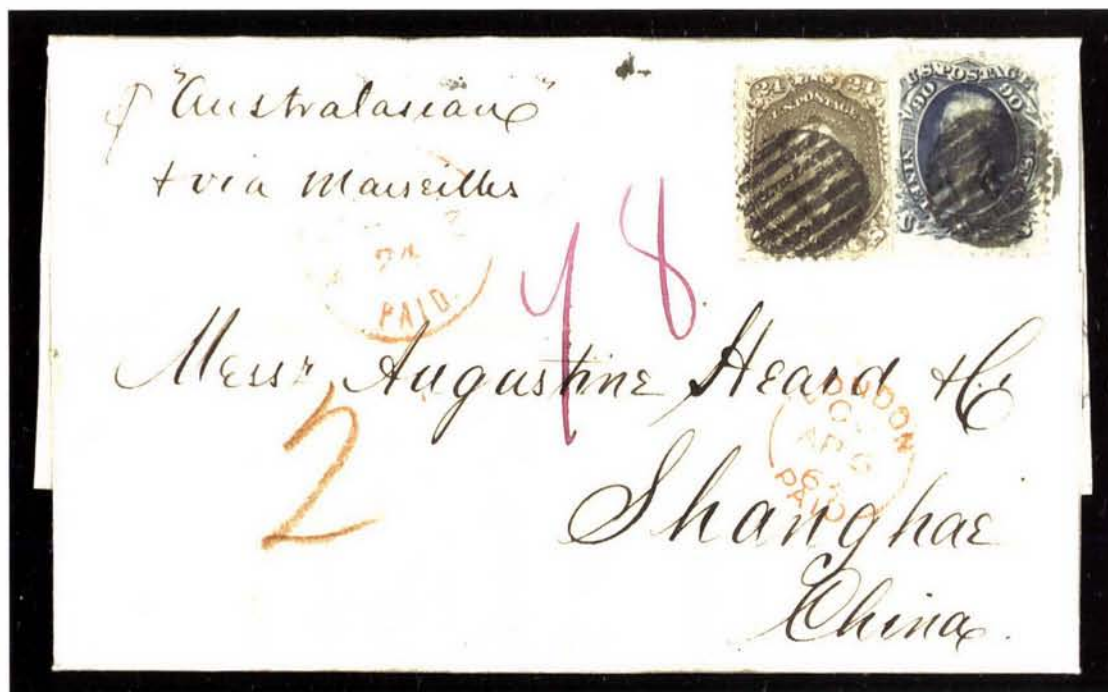 "Australasian"
+ via Marseilles
24 24
U.S. POSTAGE
U.S. POSTAGE
90 90
24
PAID
48
Messrs Augustine Heard & Co
2
LONDON
AP 9
PAID
Shanghae
China